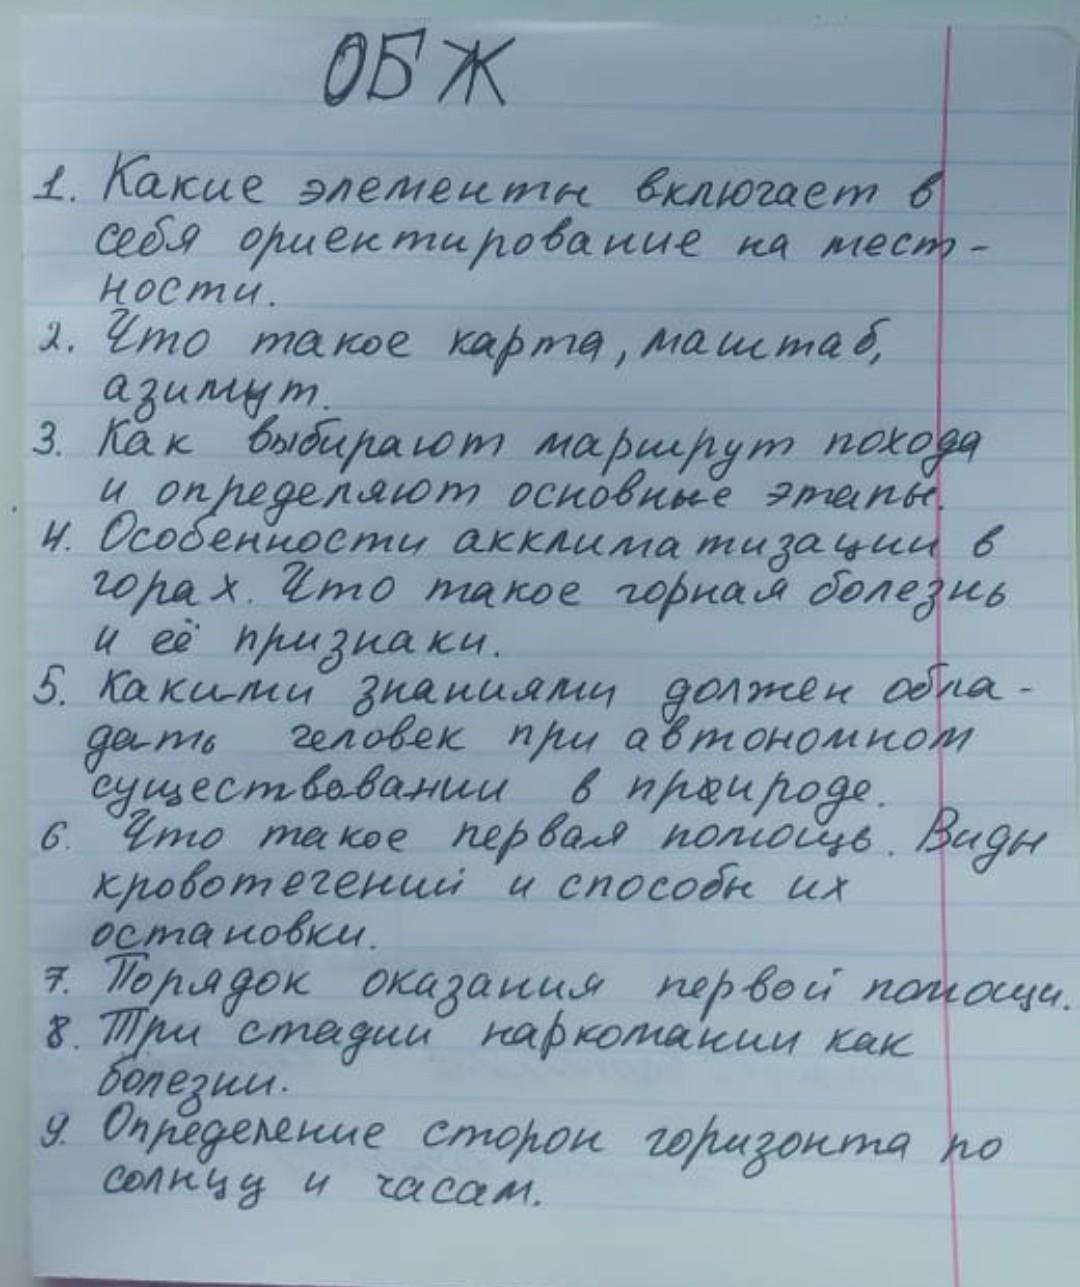 ОБЖ
1. Какие элементы включает в
себя ориентирование на мест-
ности.
2. Что такое карта, маштаб,
азимут.
3. Как выбирают маршрут похода
и определяют основные этапы.
4. Особенности акклиматизации в
горах. Что такое горная болезнь
и её признаки.
5. Какими знаниями должен обла-
дать человек при автономном
существовании в природе.
6. Что такое первая помощь. Виды
кровотечений и способы их
остановки.
7. Порядок оказания первой помощи.
8. Три стадии наркомании как
болезни.
9. Определение сторон горизонта по
солнцу и часам.